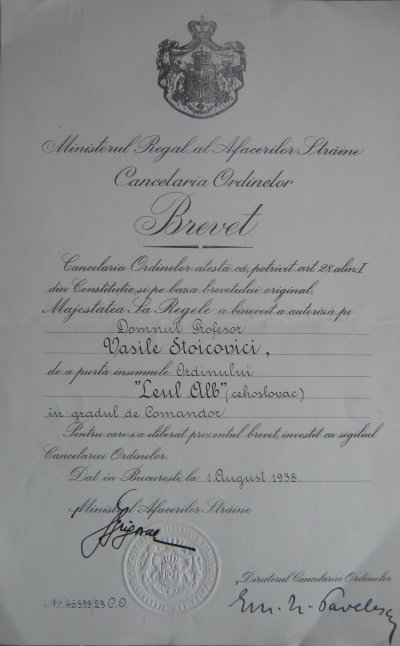 Ministerul Regal al Afacerilor Străine
Cancelaria Ordinelor
Brevet
Cancelaria Ordinelor atestă că, potrivit art. 28 alin. I
din Constituție și pe baza brevetului original.
Majestatea Sa Regele a binevoit a autoriza pe
Domnul Profesor
Vasile Stoicovici,
de a purta însemnele Ordinului
"Leul Alb" (cehoslovac)
în gradul de Comandor.
Pentru care s'a eliberat prezentul brevet, investit cu sigiliul
Cancelariei Ordinelor.
Dat în București, la 1 August 1938.
Ministrul Afacerilor Străine
Directorul Cancelariei Ordinelor
Em. N. Pavelescu
No. 46599/23 C.O.